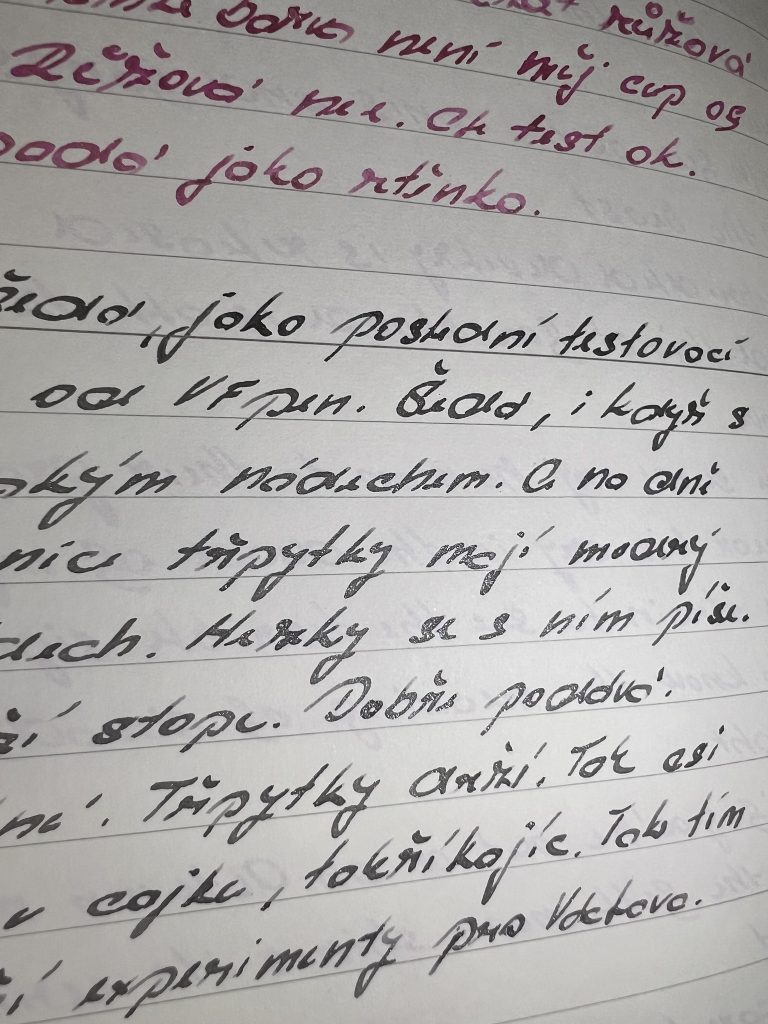 není můj cup of
růžová
Růžová ne. Ch test ok.
jako rtěnka.
Šedá, jako poslední testovací
od VF pen. Šedá, i když s
nádechem. A na dni
třpytky mají modrý
Hezky se s ním píše.
stopu. Dobře podává.
Třpytky drží. Tak asi
v cajku, takříkajíc. Tak tím
experimenty pro Vdctava.